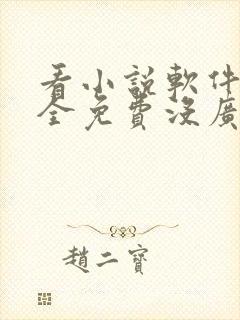 看小說軟件
全免費沒廣
趙二寶